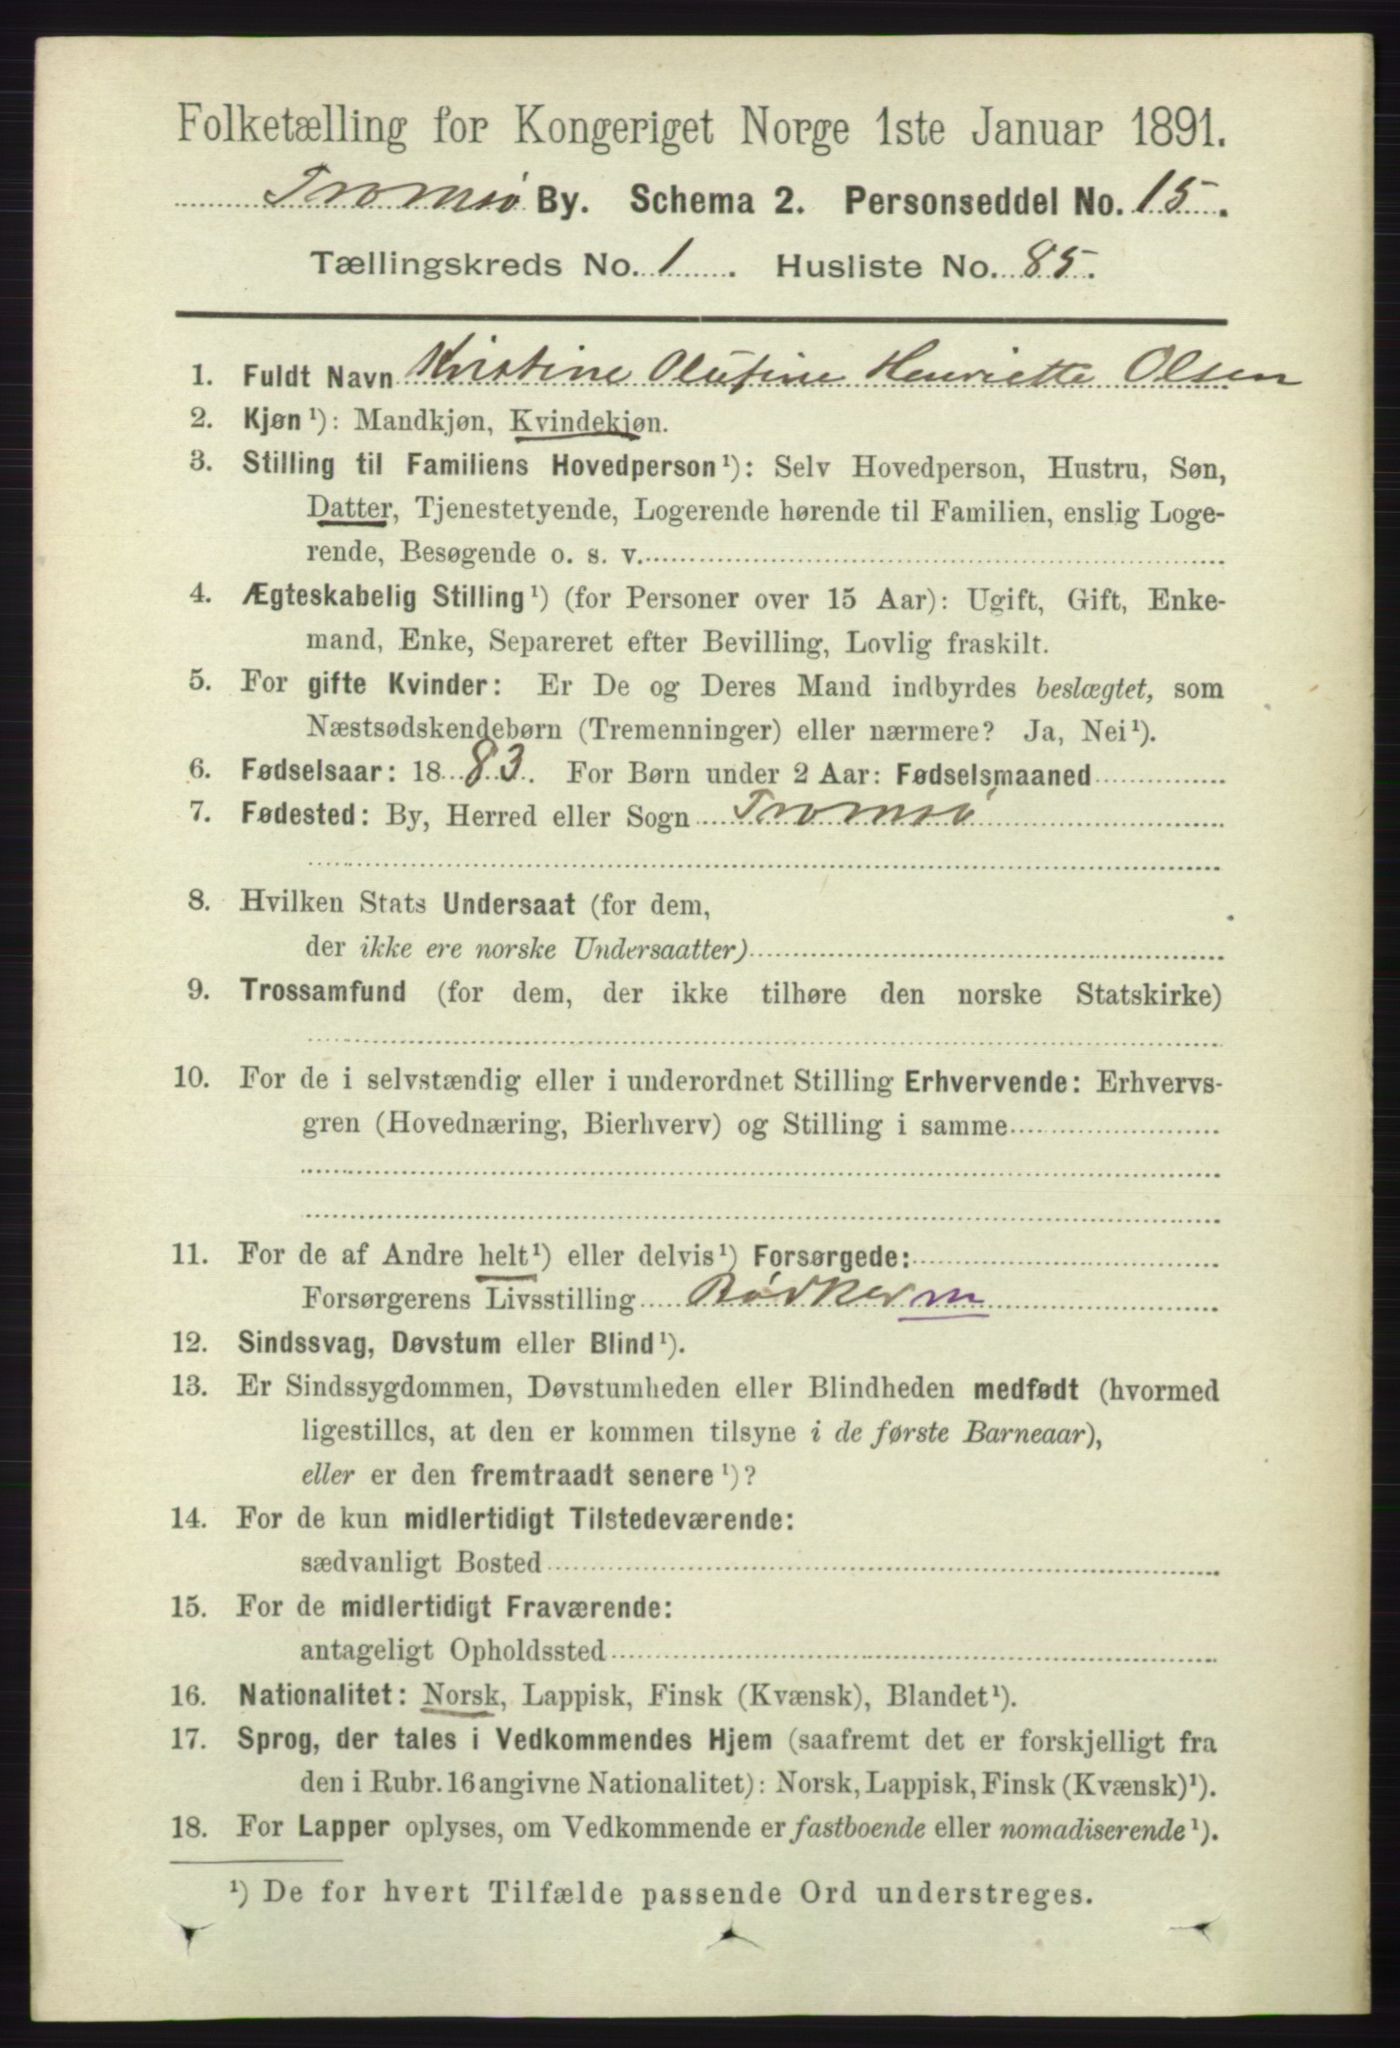 Folketælling for Kongeriget Norge 1ste Januar 1891.
Tromsø By. Schema 2. Personseddel No. 15.
Tællingskreds No. 1. Husliste No. 85.
1. Fuldt Navn Kristine Olufine Henriette Olsen
2. Kjøn¹): Mandkjøn, Kvindekjøn.
3. Stilling til Familiens Hovedperson¹): Selv Hovedperson, Hustru, Søn,
Datter, Tjenestetyende, Logerende hørende til Familien, enslig Loge-
rende, Besøgende o. s. v.
4. Ægteskabelig Stilling¹) (for Personer over 15 Aar): Ugift, Gift, Enke-
mand, Enke, Separeret efter Bevilling, Lovlig fraskilt.
5. For gifte Kvinder: Er De og Deres Mand indbyrdes beslægtet, som
Næstsødskendebørn (Tremenninger) eller nærmere? Ja, Nei¹).
6. Fødselsaar: 1883. For Børn under 2 Aar: Fødselsmaaned
7. Fødested: By, Herred eller Sogn Tromsø
8. Hvilken Stats Undersaat (for dem,
der ikke ere norske Undersaatter)
9. Trossamfund (for dem, der ikke tilhøre den norske Statskirke)
10. For de i selvstændig eller i underordnet Stilling Erhvervende: Erhvervs-
gren (Hovednæring, Bierhverv) og Stilling i samme
11. For de af Andre helt¹) eller delvis¹) Forsørgede:
Forsørgerens Livsstilling Bødker m
12. Sindssvag, Døvstum eller Blind¹).
13. Er Sindssygdommen, Døvstumheden eller Blindheden medfødt (hvormed
ligestilles, at den er kommen tilsyne i de første Barneaar),
eller er den fremtraadt senere¹)?
14. For de kun midlertidigt Tilstedeværende:
sædvanligt Bosted
15. For de midlertidigt Fraværende:
antageligt Opholdssted
16. Nationalitet: Norsk, Lappisk, Finsk (Kvænsk), Blandet¹).
17. Sprog, der tales i Vedkommendes Hjem (saafremt det er forskjelligt fra
den i Rubr. 16 angivne Nationalitet): Norsk, Lappisk, Finsk (Kvænsk)¹).
18. For Lapper oplyses, om Vedkommende er fastboende eller nomadiserende¹).
¹) De for hvert Tilfælde passende Ord understreges.